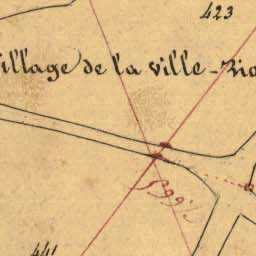 423
illage de la ville-Rio
441